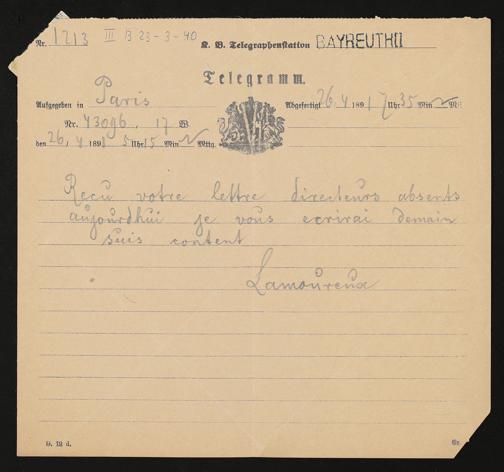 Nr. 1213 III B 23-3-40 K. B. Telegraphenstation BAYREUTH II
Telegramm.
Aufgegeben in Paris Abgefertigt 26, 4 189 7 Uhr 35 Min
Nr. 43096, 17 W.
den 26, 4 189 5 Uhr 15 Min Mittg.
Reçu votre lettre directeurs absents
aujourdhui je vous ecrirai demain
suis content
Lamoureux
D. 12 d. Gr.